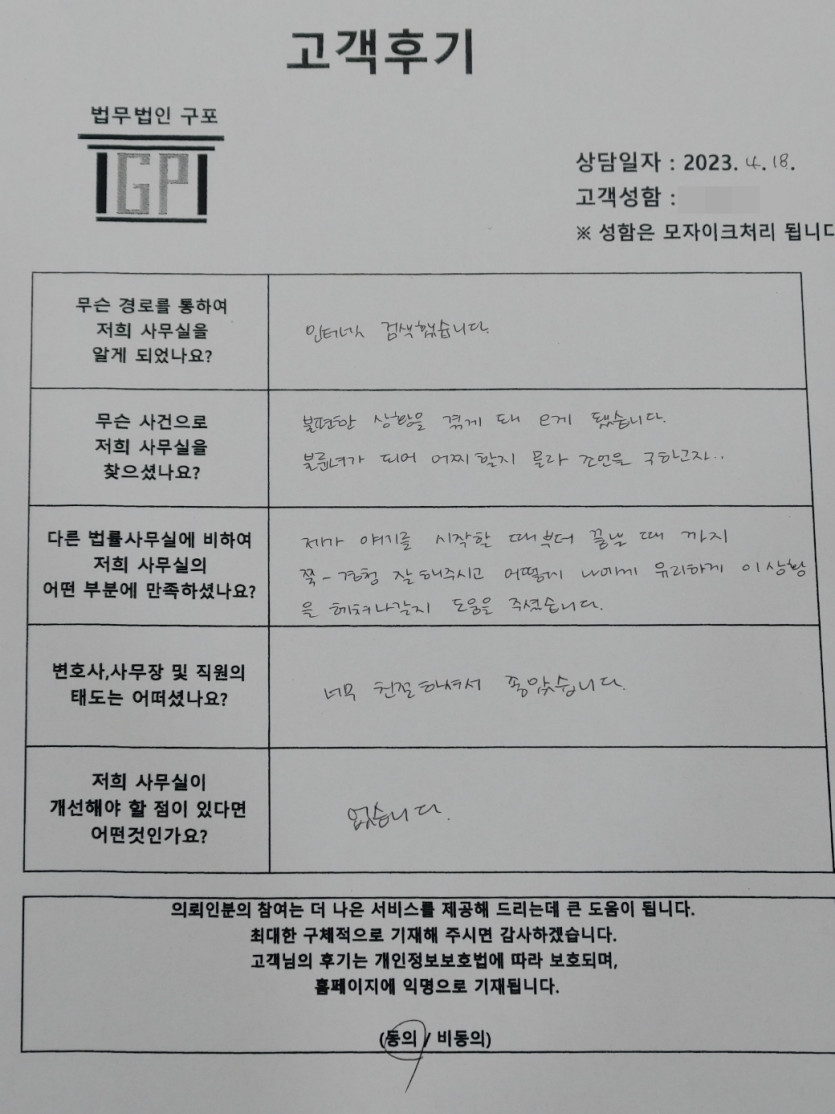 고객후기
법무법인 구포
GP
상담일자 : 2023. 4. 18.
고객성함 :
※ 성함은 모자이크처리 됩니다
무슨 경로를 통하여
저희 사무실을
알게 되었나요?
인터넷 검색했습니다.
무슨 사건으로
저희 사무실을
찾으셨나요?
불편한 상황을 겪게 돼 오게 됐습니다.
불륜녀가 되어 어찌할지 몰라 조언을 구하고자..
다른 법률사무실에 비하여
저희 사무실의
어떤 부분에 만족하셨나요?
제가 얘기를 시작할 때부터 끝낼 때 까지
쭉- 경청 잘 해주시고 어떻게 나에게 유리하게 이 상황
을 헤쳐나갈지 도움을 주셨습니다.
변호사,사무장 및 직원의
태도는 어떠셨나요?
너무 친절하셔서 좋았습니다.
저희 사무실이
개선해야 할 점이 있다면
어떤것인가요?
없습니다.
의뢰인분의 참여는 더 나은 서비스를 제공해 드리는데 큰 도움이 됩니다.
최대한 구체적으로 기재해 주시면 감사하겠습니다.
고객님의 후기는 개인정보보호법에 따라 보호되며,
홈페이지에 익명으로 기재됩니다.
(동의 / 비동의)